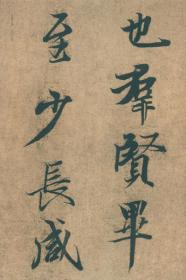 也群賢畢
至少長咸